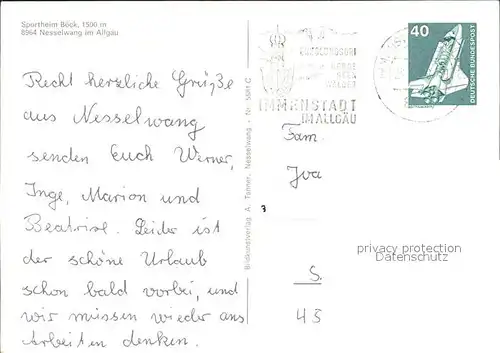 Sportheim Böck, 1500 m
8964 Nesselwang im Allgäu
Recht herzliche Grüße
aus Nesselwang
senden Euch Werner,
Inge, Marion und
Beatrise. Leider ist
der schöne Urlaub
schon bald vorbei, und
wir müssen wieder ans
Arbeiten denken.
Bildkunstverlag A. Tanner, Nesselwang - Nr.
IMMENSTADT
IM ALLGÄU
40
DEUTSCHE BUNDESPOST
Fam.
Iva
3
privacy protection
Datenschutz
S.
45